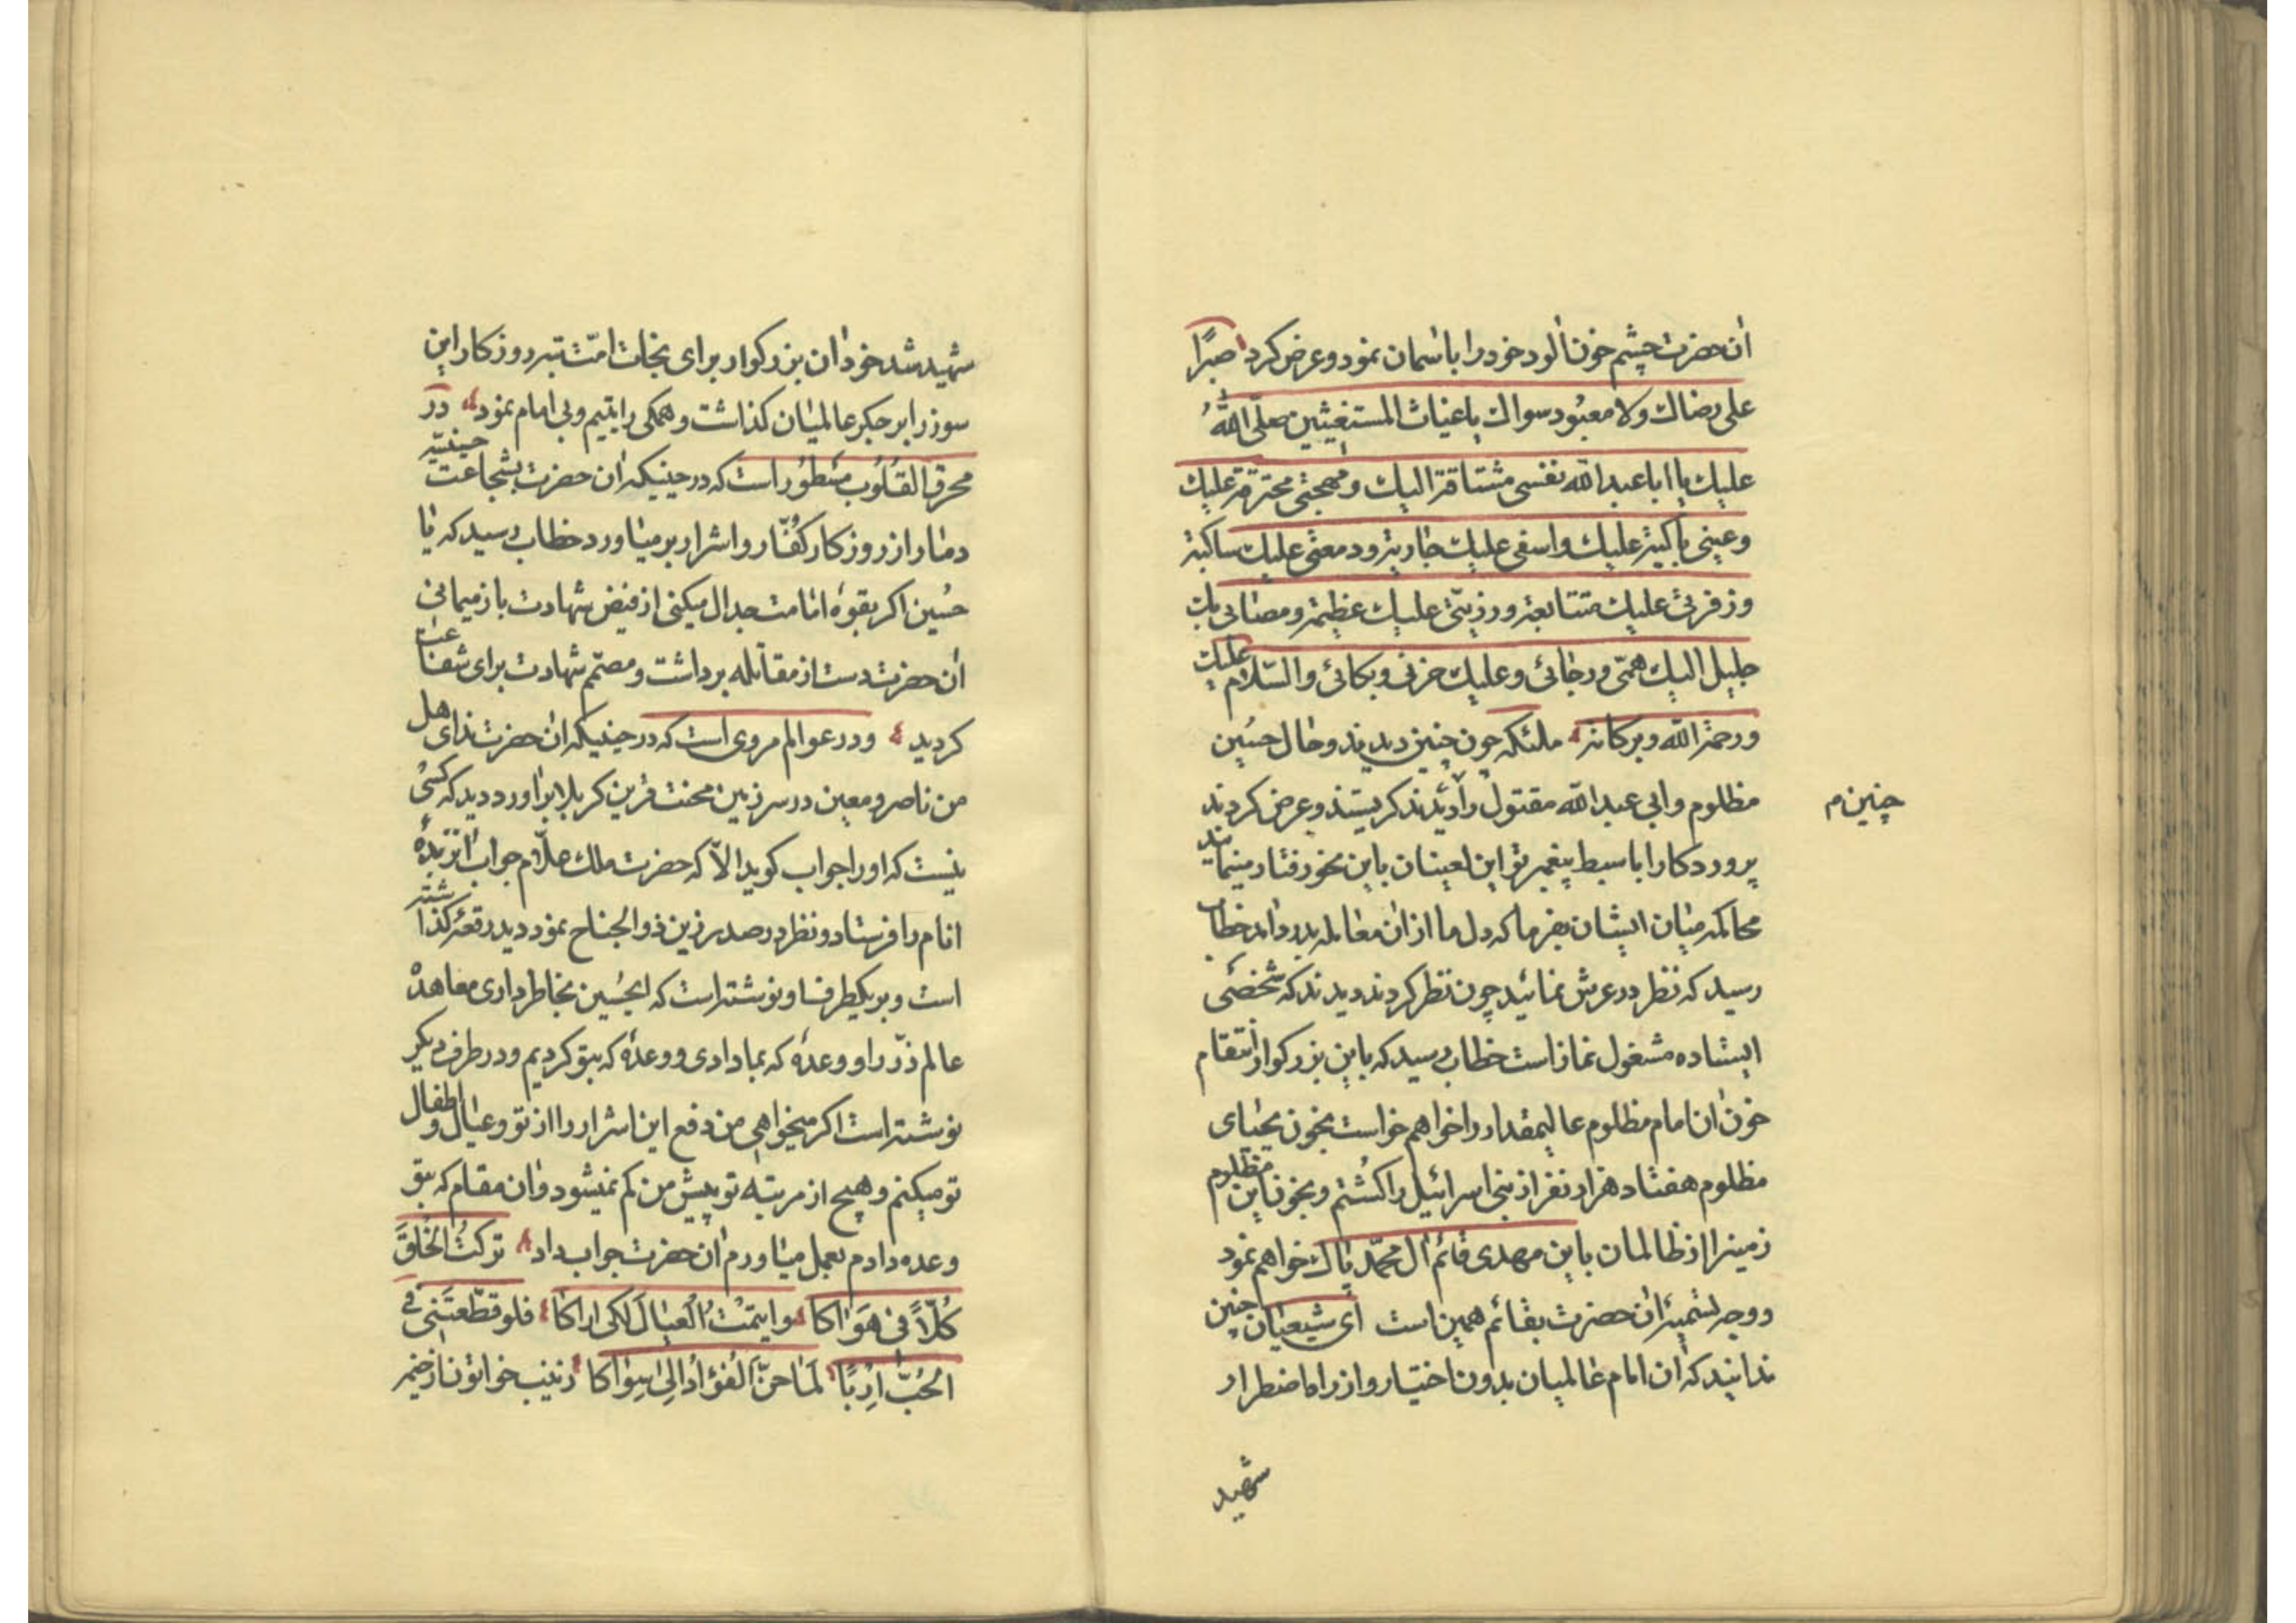 آن حضرت چشم خون آلود خود را باسمان نمود و عرض کرد صبرًا
علی رضاك ولا معبُود سواك یا غیاث المستغیثین صلّی اللهُ
علیك یا ابا عبد الله نفسی مشتاقة الیك و مهجتی محترقة علیك
وعینی باکیة علیك و اسفی علیك جاریة و دمعتی علیك ساکبة
و زفرتی علیك متتابعة و رزیّتی علیك عظیمة و مصابی بك
جلیل الیك همّتی و رجائی و علیك حزنی و بکائی والسّلام علیك
ورحمة الله وبرکاته ملئکه چون چنین دیدند و حال حسین
مظلوم و ابی عبد الله مقتول را دیدند کریستند و عرض کردند
چنین م
پروردکارا با سبط پیغمبر تو این لعینان باین نحو رفتار مینمایند
محاکمه میان ایشان بفرما که دل ما از ان معامله بدرد آمد خطاب
رسید که نظر در عرش نمائید چون نظر کردند دیدند که شخصی
ایستاده مشغول نماز است خطاب رسید که باین بزرکوار انتقام
خون ان امام مظلوم عالیمقدار را خواهم خواست بخون یحیای
مظلوم هفتاد هزار نفر از بنی اسرائیل را کشتم و بخون این مظلوم
زمینرا از ظالمان باین مهدی قائم آل محمّد پاك خواهم نمود
و وجه تسمیۀ ان حضرت بقائم همین است ای شیعیان چنین
ندانید که آن امام عالمیان بدون اختیار و از راه اضطرار
شهید
شهید شد خود ان بزرکوار برای نجات امّت تبه روزکار این
سوز را بر جکر عالمیان کذاشت و همکی را یتیم و بی امام نمود در
محرق القلُوب مسطُور است که در حینیکه آن حضرت بشجاعت حسینیّه
دمار از روزکار کفّار و اشرار بر میاورد خطاب رسید که یا
حُسین اکر بقوۀ امامت جدال میکنی از فیض شهادت باز میمانی
آن حضرت دست از مقاتله برداشت و مصمّم شهادت برای شفاعت
کردید و در عوالم مروی است که در حینیکه آن حضرت ندای هل
من ناصر و معین در سرزمین محنت قرین کربلا براورد دید که کسی
نیست که او را جواب کوید الاّ که حضرت ملك علاّم جواب
انام را فرستاد و نظر در صدر زین ذو الجناح نمود دید رقعۀ کذاشته
است و بر یکطرف او نوشته است که ایحُسین بخاطر داری معاهدۀ
عالم ذرّ را و وعدۀ که بما دادی و وعدۀ که بتو کردیم و در طرف دیکر
نوشته است اکر میخواهی من دفع این اشرار را از تو و عیال و اطفال
تو میکنم و هیچ از مرتبه تو پیش من کم نمیشود و ان مقام که بتو
وعده دادم بعمل میاورم آن حضرت جواب داد ترکتُ الخَلقَ
کُلّاً فی هَوَاکا وایتمْتُ العیالَ لکی اراکا فلو قطّعتَنی فی
الحُبّ اِربًا لَمَا حنَّ الفؤادُ الی سِوٰاکا زینب خواتون از خیمه